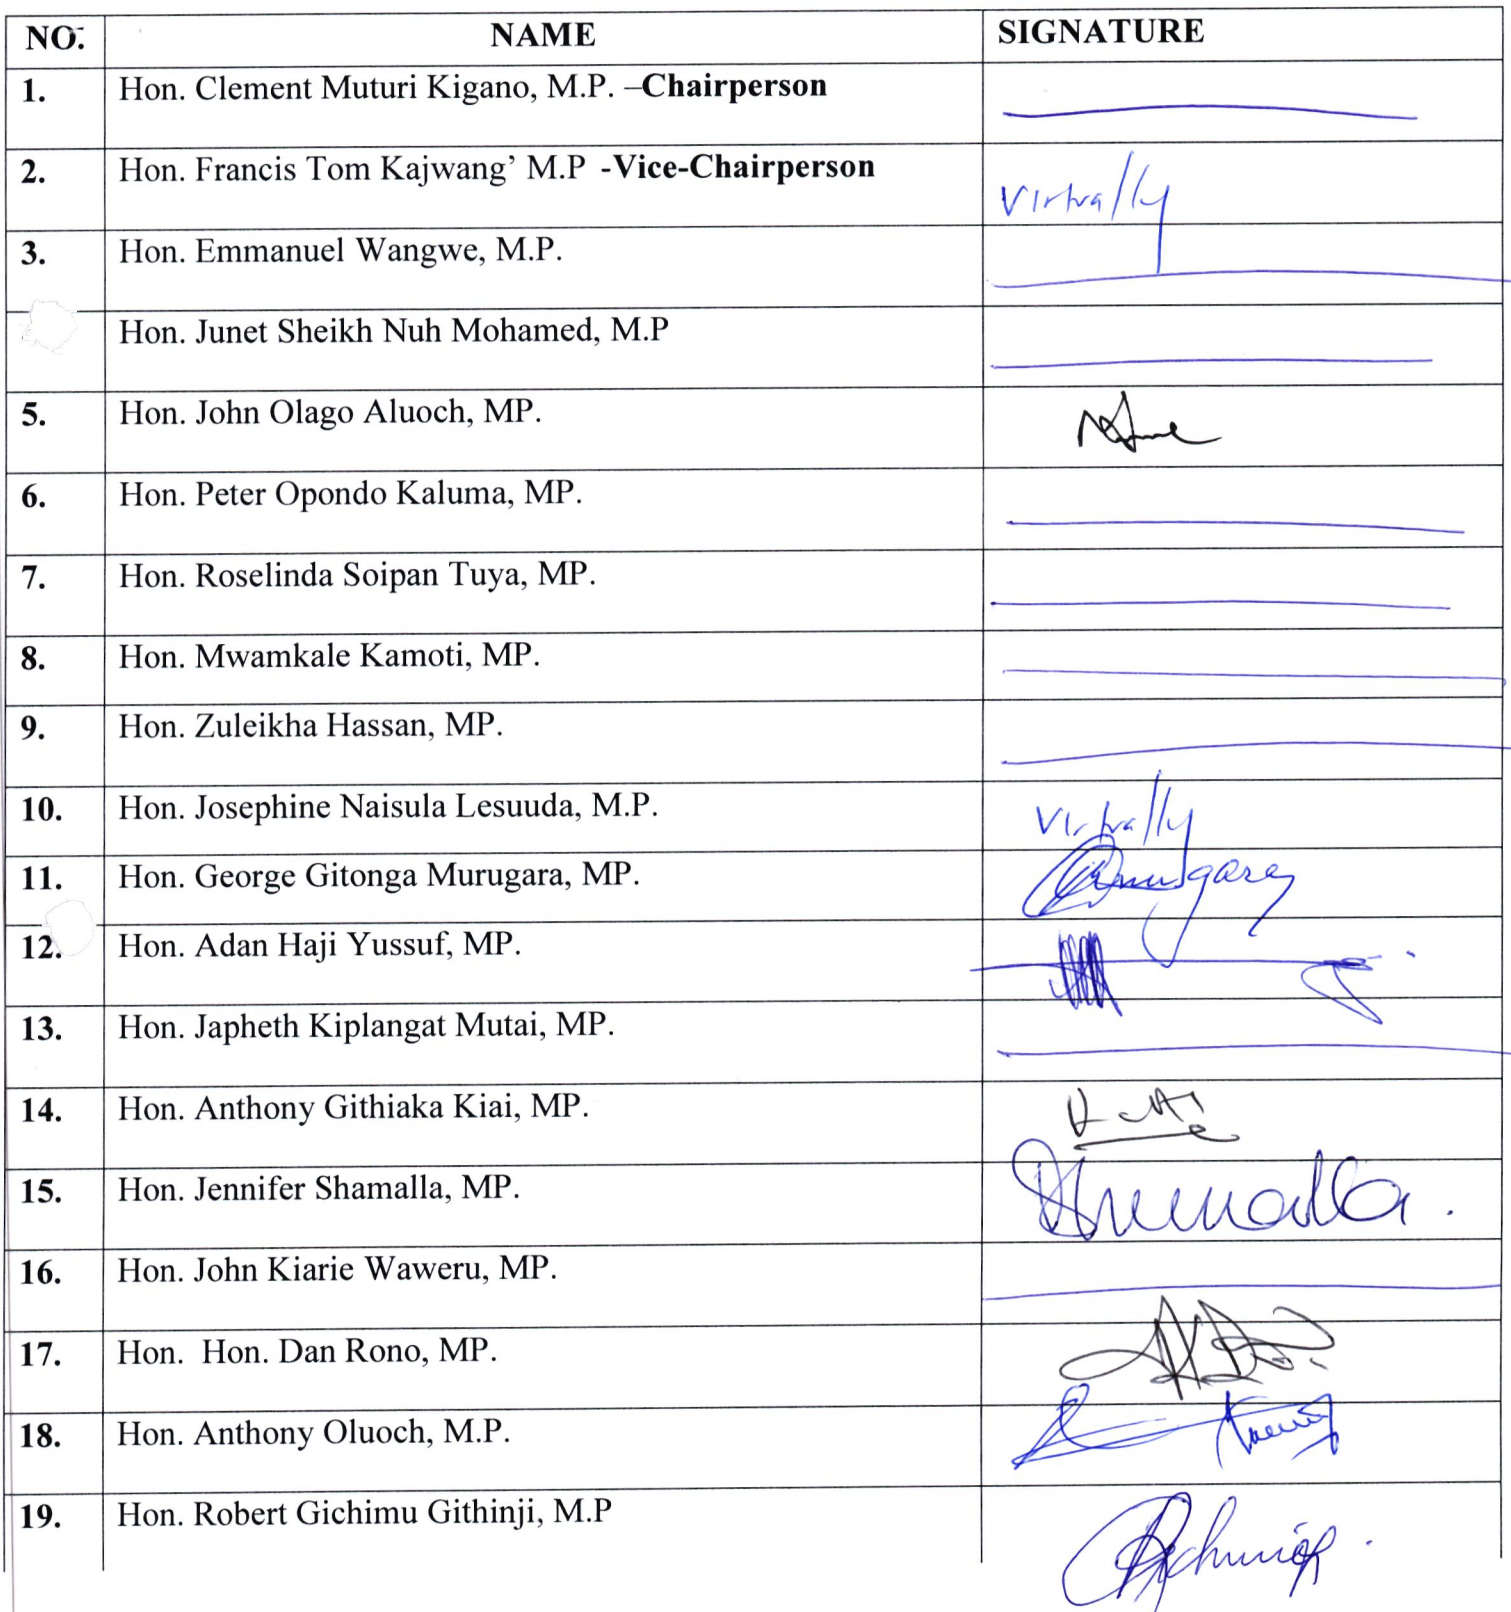 NO. NAME SIGNATURE
1. Hon. Clement Muturi Kigano, M.P. –Chairperson
2. Hon. Francis Tom Kajwang’ M.P -Vice-Chairperson Virtually
3. Hon. Emmanuel Wangwe, M.P.
Hon. Junet Sheikh Nuh Mohamed, M.P
5. Hon. John Olago Aluoch, MP.
6. Hon. Peter Opondo Kaluma, MP.
7. Hon. Roselinda Soipan Tuya, MP.
8. Hon. Mwamkale Kamoti, MP.
9. Hon. Zuleikha Hassan, MP.
10. Hon. Josephine Naisula Lesuuda, M.P. Virtually
11. Hon. George Gitonga Murugara, MP.
12. Hon. Adan Haji Yussuf, MP.
13. Hon. Japheth Kiplangat Mutai, MP.
14. Hon. Anthony Githiaka Kiai, MP.
15. Hon. Jennifer Shamalla, MP.
16. Hon. John Kiarie Waweru, MP.
17. Hon. Hon. Dan Rono, MP.
18. Hon. Anthony Oluoch, M.P.
19. Hon. Robert Gichimu Githinji, M.P